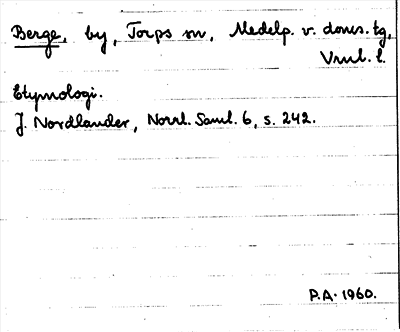 Berge, by, Torps sn, Medelp. v. doms. tg,
Vrnl. l.
Etymologi.
J. Nordlander, Norrl. Saml. 6, s. 242.
P.A. 1960.